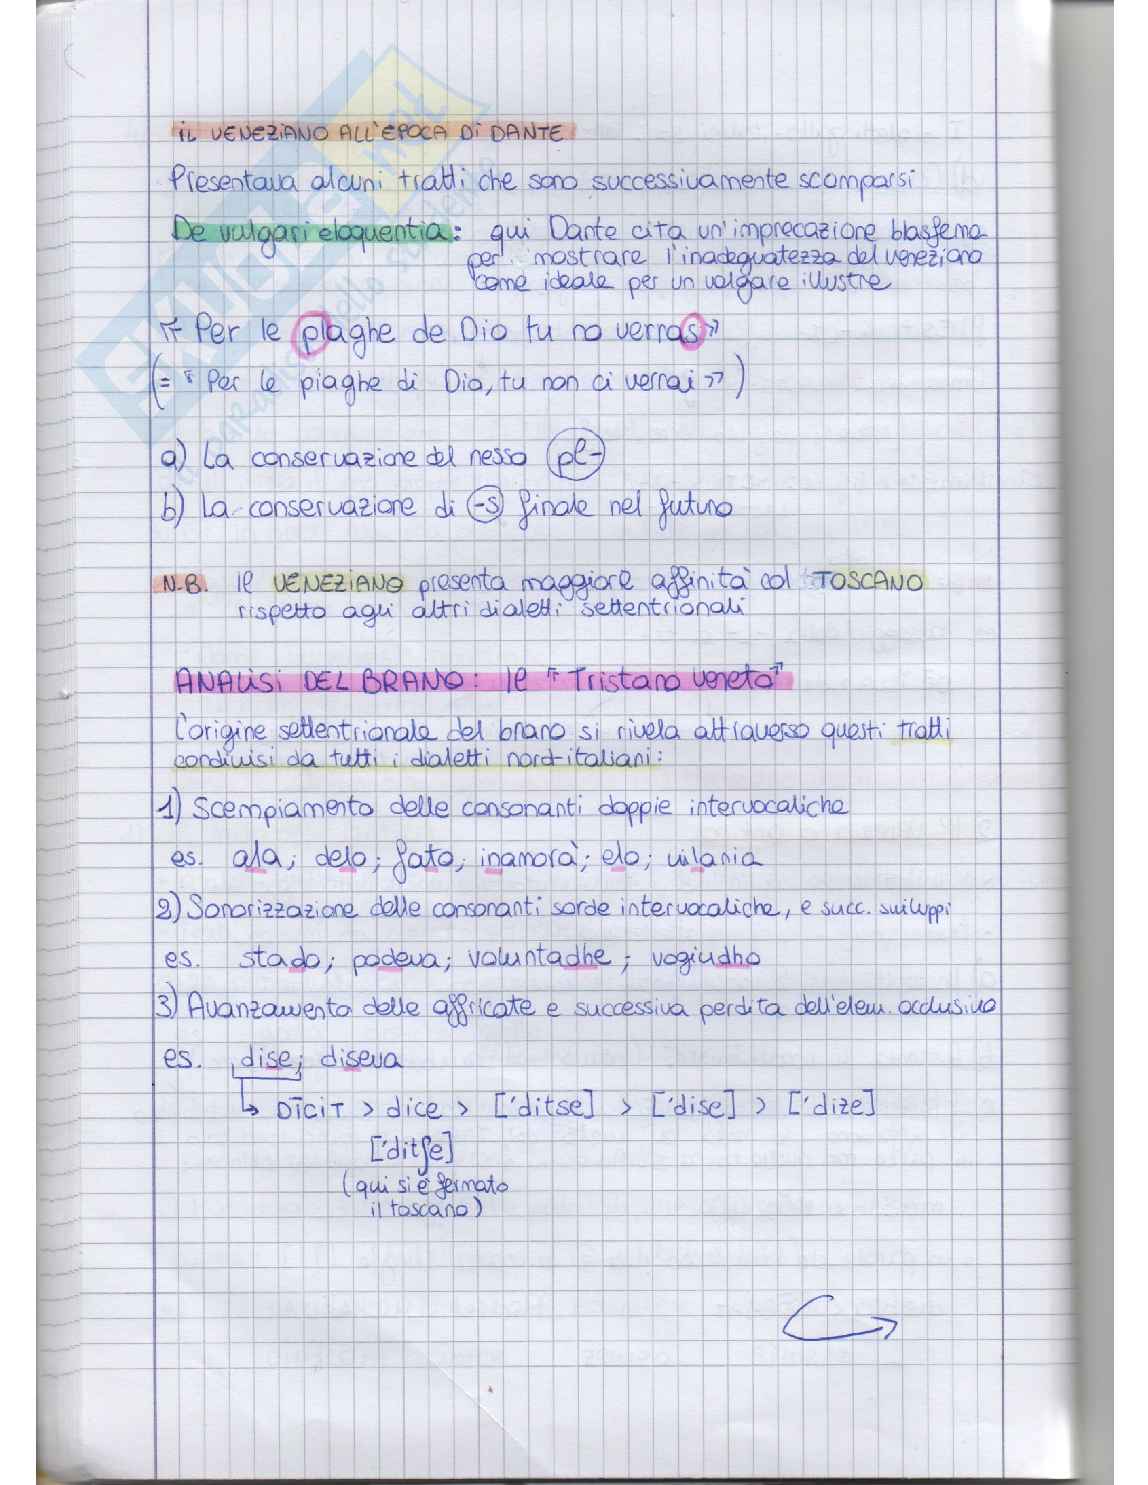 IL VENEZIANO ALL'EPOCA DI DANTE
Presentava alcuni tratti che sono successivamente scomparsi
De vulgari eloquentia: qui Dante cita un'imprecazione blasfema
per mostrare l'inadeguatezza del veneziano
come ideale per un volgare illustre
« Per le plaghe de Dio tu no verras »
(= « Per le piaghe di Dio, tu non ci verrai »)
a) La conservazione del nesso pl-
b) La conservazione di -s finale nel futuro
N.B. Il VENEZIANO presenta maggiore affinità col TOSCANO
rispetto agli altri dialetti settentrionali
ANALISI DEL BRANO: Il "Tristano veneto"
L'origine settentrionale del brano si rivela attraverso questi tratti
condivisi da tutti i dialetti nord-italiani:
1) Scempiamento delle consonanti doppie intervocaliche
es. ala; delo; fato; inamorà; elo; vilania
2) Sonorizzazione delle consonanti sorde intervocaliche, e succ. sviluppi
es. stado; podeva; voluntadhe; vogiudho
3) Avanzamento delle affricate e successiva perdita dell'elem. occlusivo
es. dise; diseva
↳ DĪCIT > dice > ['ditse] > ['dise] > ['dize]
['ditʃe]
(qui si è fermato
il toscano)